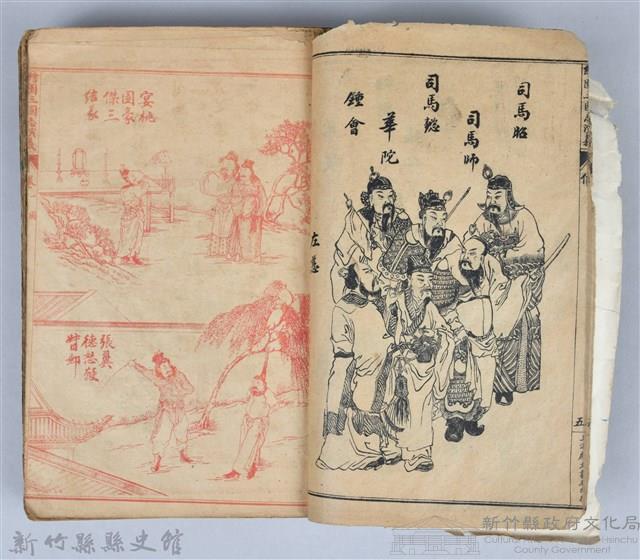 司馬昭
司馬師
司馬懿
華陀
鍾會
左慈
五
宴桃
園豪
傑三
結義
張翼
德怒鞭
督郵
繪圖三國志演義
新竹縣縣史館
新竹縣政府文化局
County Government